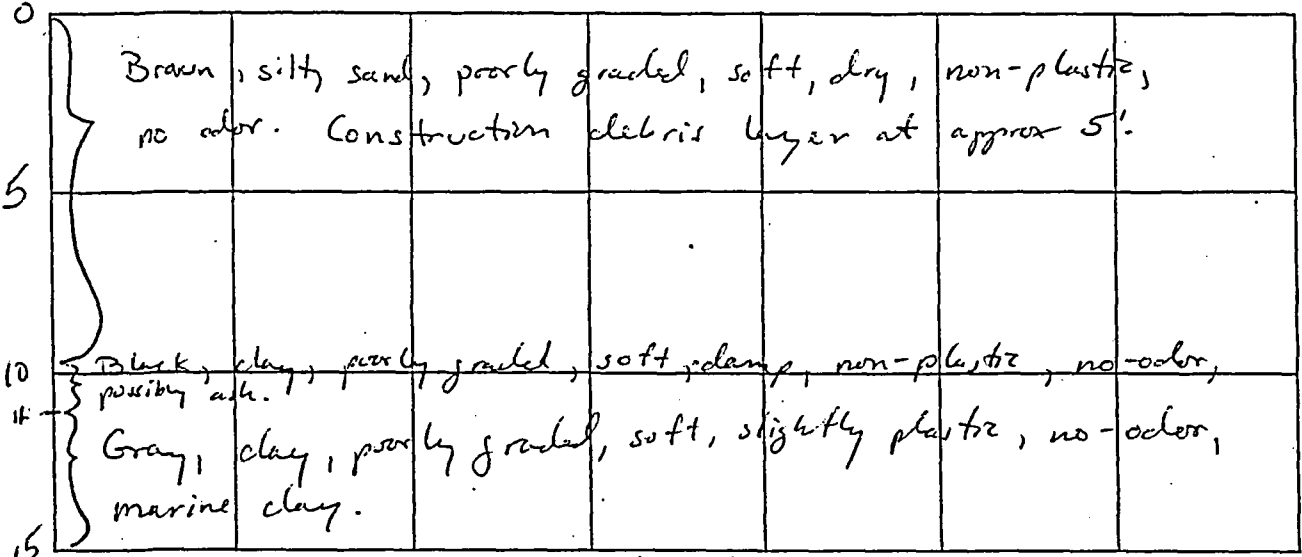 0
Brown, silty sand, poorly graded, soft, dry, non-plastic,
no odor. Construction debris layer at approx 5'.
5
10 Black, clay, poorly graded, soft, damp, non-plastic, no-odor,
possibly ash.
11
Gray, clay, poorly graded, soft, slightly plastic, no-odor,
marine clay.
15